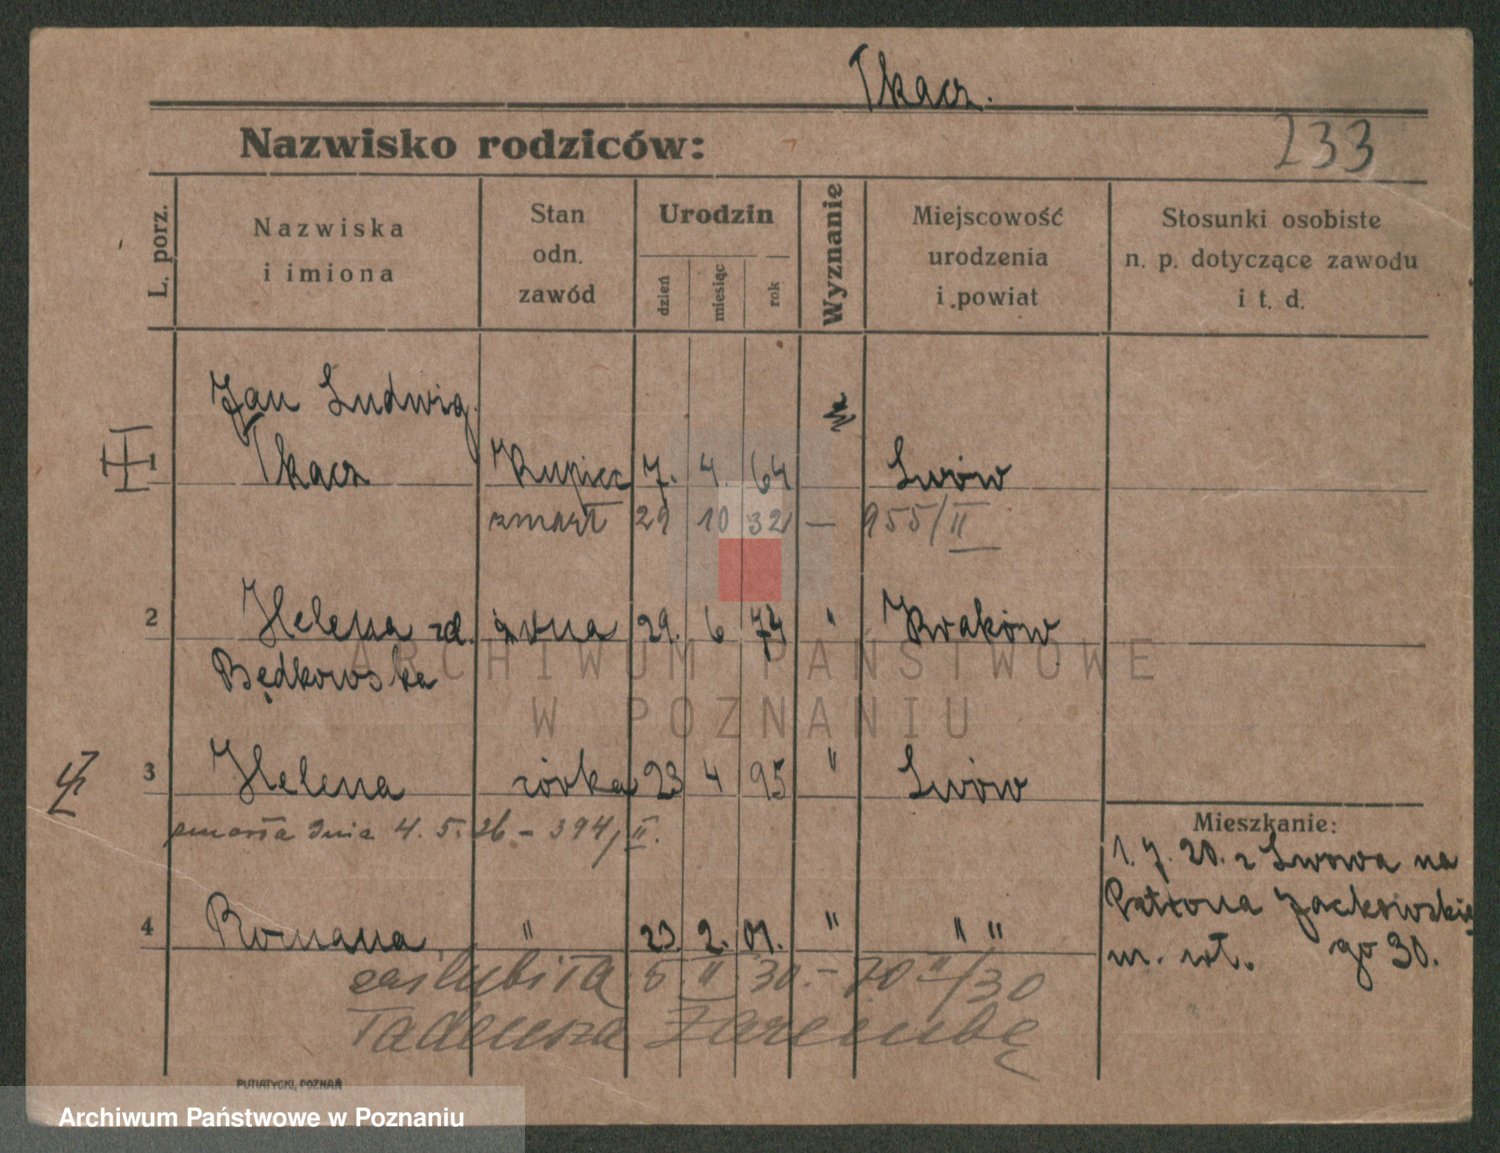 Tkacz.
Nazwisko rodziców:
233
L. porz.
Nazwiska
i imiona
Stan
odn.
zawód
Urodzin
dzień
miesiąc
rok
Wyznanie
Miejscowość
urodzenia
i powiat
Stosunki osobiste
n. p. dotyczące zawodu
i t. d.
Jan Ludwig
1 Tkacz Kupiec 7. 4 64 rk Lwów
zmarł 29 10 32 — 955/II
2 Helena zd. żona 29. 6 74 " Kraków
Będkowska
3 Helena córka 23 4 95 " Lwów
zmarła dnia 4. 5. 26 - 394/II.
Mieszkanie:
1. 7. 20. z Lwowa na
Patrona Jackowskie
go 30.
4 Romana " 23. 2. 01. " " "
zaślubiła 5. II 30. - 70 II/30
Tadeusza Zarembę
PUTIATYCKI, POZNAŃ
ARCHIWUM PAŃSTWOWE
W POZNANIU
Archiwum Państwowe w Poznaniu